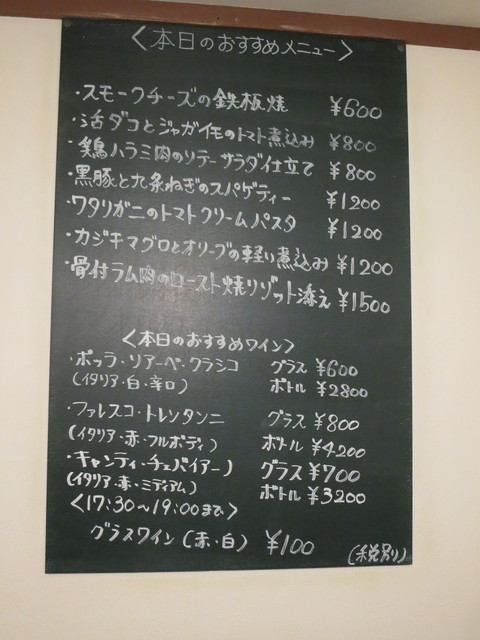 〈本日のおすすめメニュー〉
・スモークチーズの鉄板焼 ¥600
・活ダコとジャガイモのトマト煮込み ¥800
・鶏ハラミ肉のソテーサラダ仕立て ¥800
・黒豚と九条ねぎのスパゲティー ¥1200
・ワタリガニのトマトクリームパスタ ¥1200
・カジキマグロとオリーブの軽い煮込み ¥1200
・骨付ラム肉のロースト焼リゾット添え ¥1500
〈本日のおすすめワイン〉
・ボッラ・ソアーベ・クラシコ グラス ¥600
(イタリア・白・辛口) ボトル ¥2800
・ファレスコ・トレンタンニ グラス ¥800
(イタリア・赤・フルボディ) ボトル ¥4200
・キャンティ・チェバイアーノ グラス ¥700
(イタリア・赤・ミディアム) ボトル ¥3200
〈17:30~19:00まで〉
グラスワイン(赤・白) ¥100
(税別り)